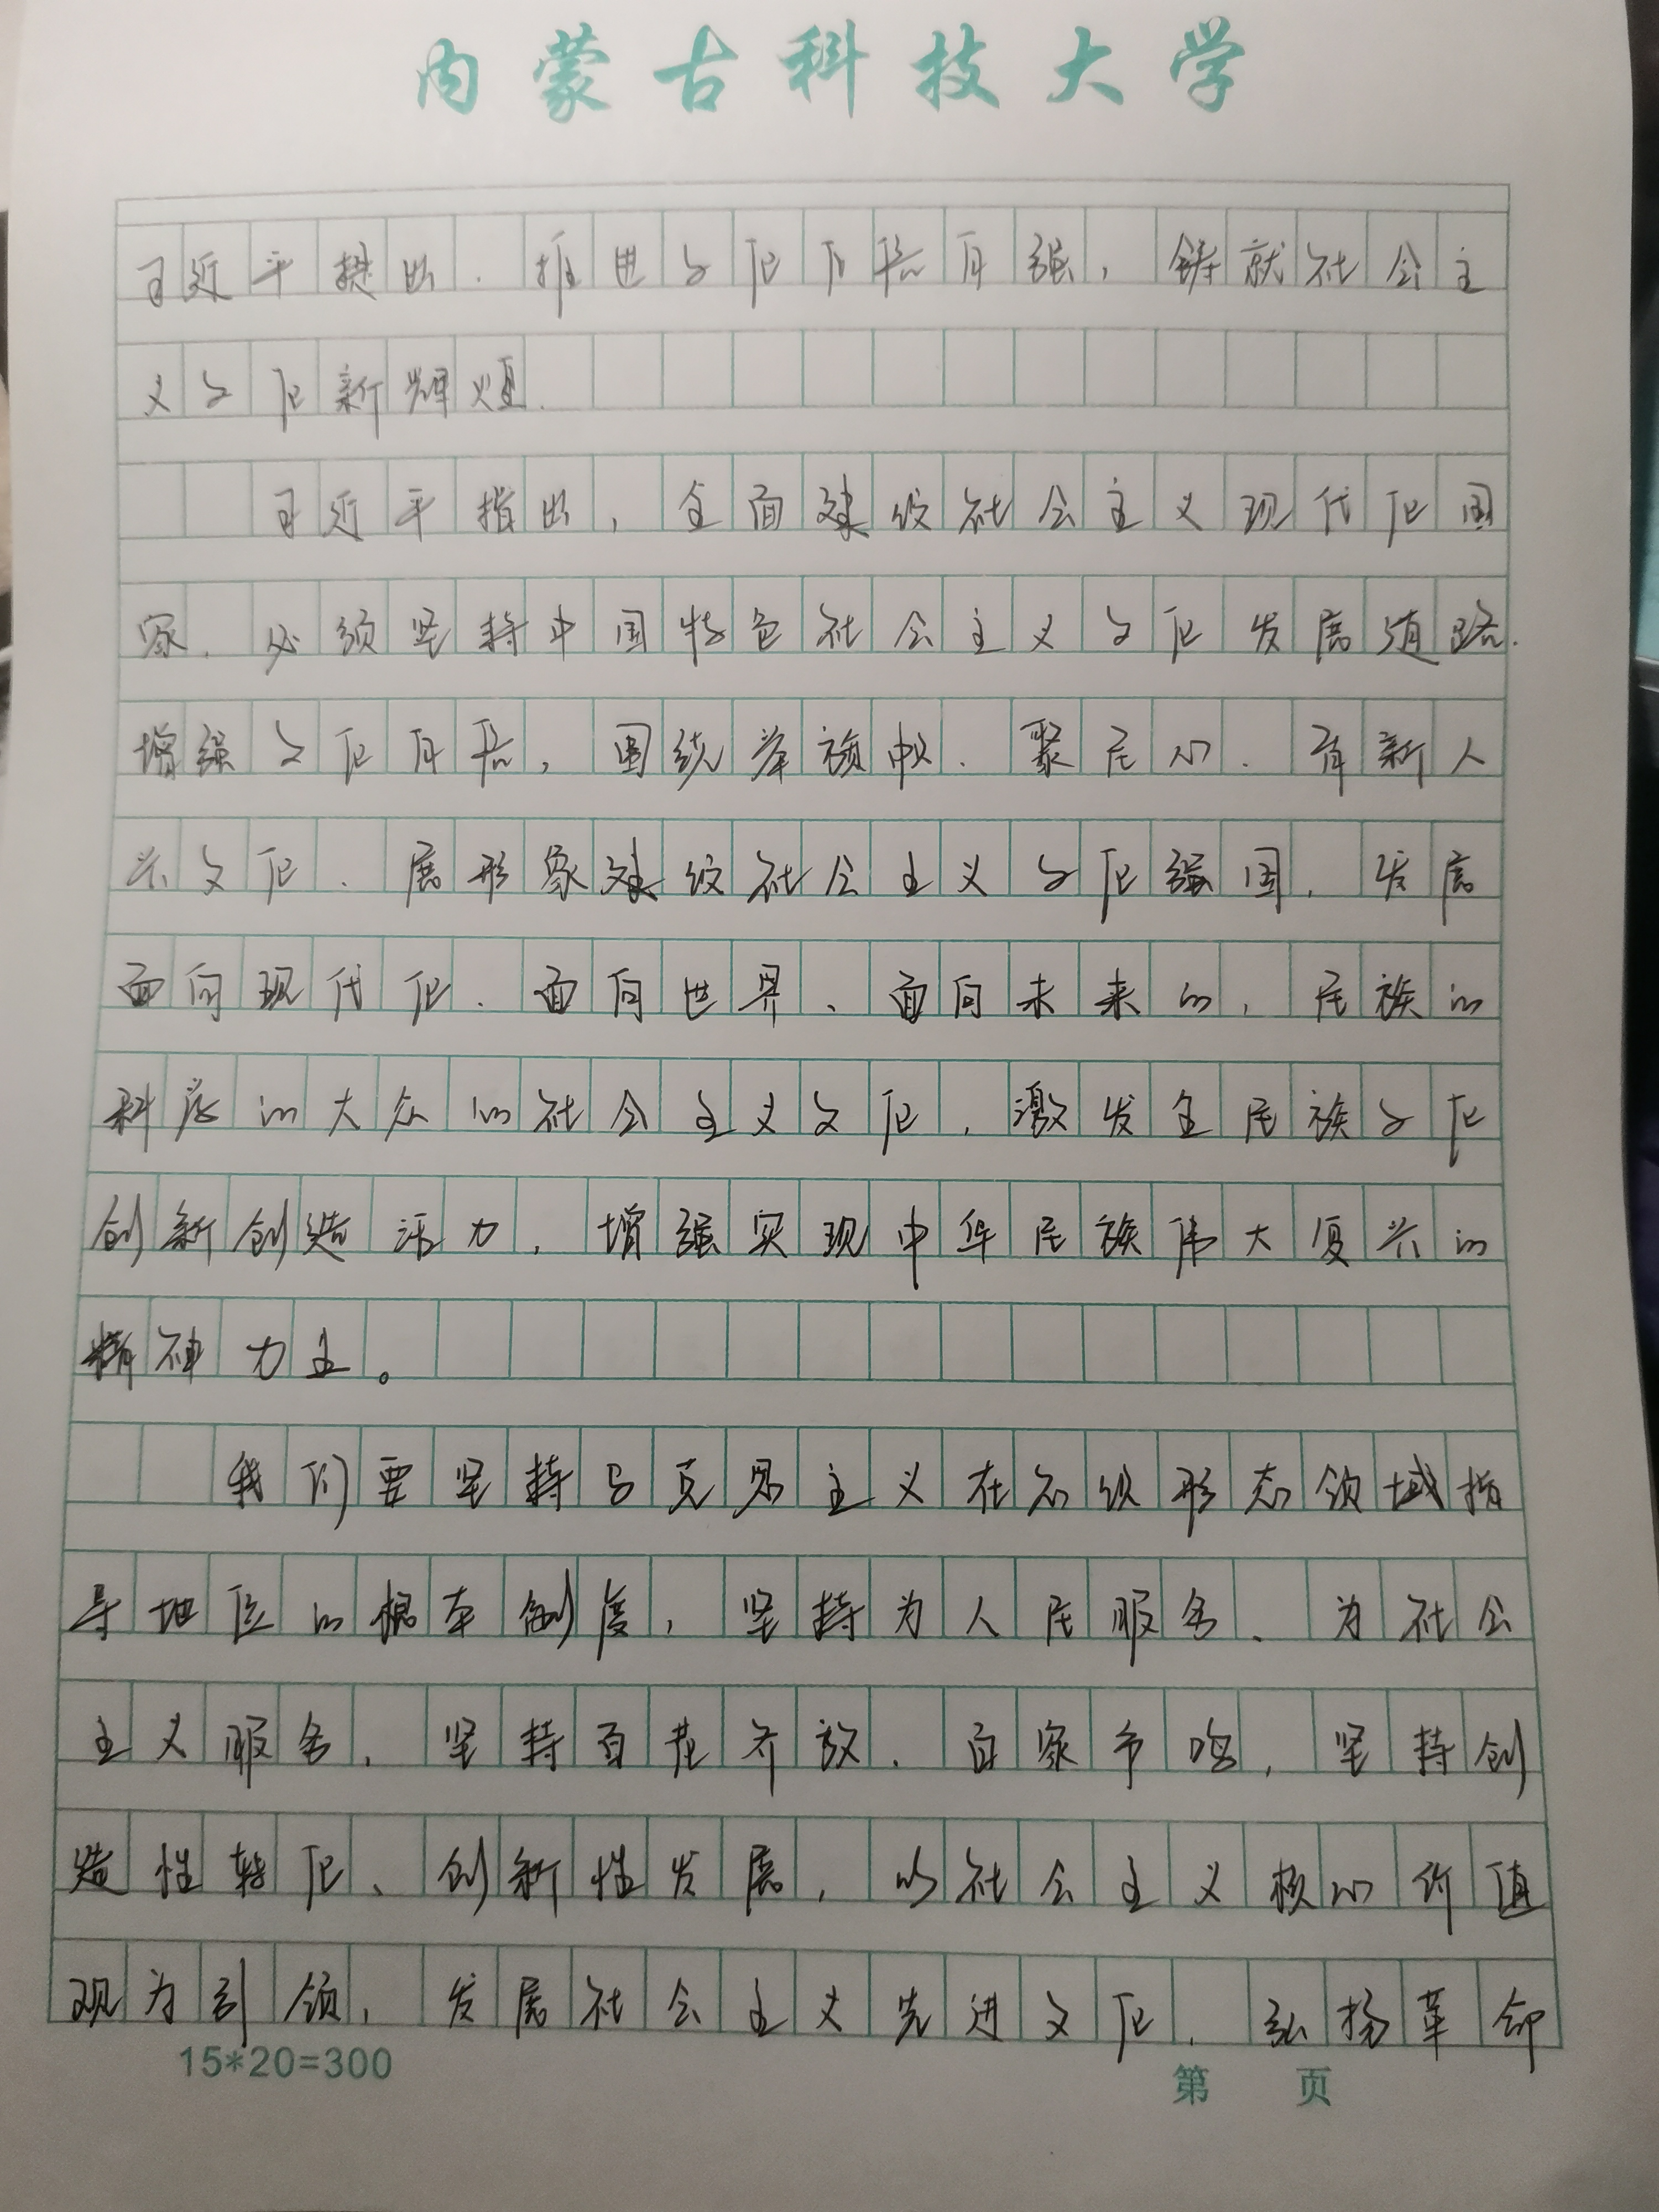 内蒙古科技大学
习近平提出，推进文化自信自强，铸就社会主
义文化新辉煌.
习近平指出，全面建设社会主义现代化国
家，必须坚持中国特色社会主义文化发展道路.
增强文化自信，围绕举旗帜、聚民心、育新人
兴文化、展形象建设社会主义文化强国，发展
面向现代化、面向世界、面向未来的，民族的
科学的大众的社会主义文化，激发全民族文化
创新创造活力，增强实现中华民族伟大复兴的
精神力量。
我们要坚持马克思主义在意识形态领域指
导地位的根本制度，坚持为人民服务、为社会
主义服务，坚持百花齐放、百家争鸣，坚持创
造性转化、创新性发展，以社会主义核心价值
观为引领，发展社会主义先进文化，弘扬革命
15*20=300
第 页